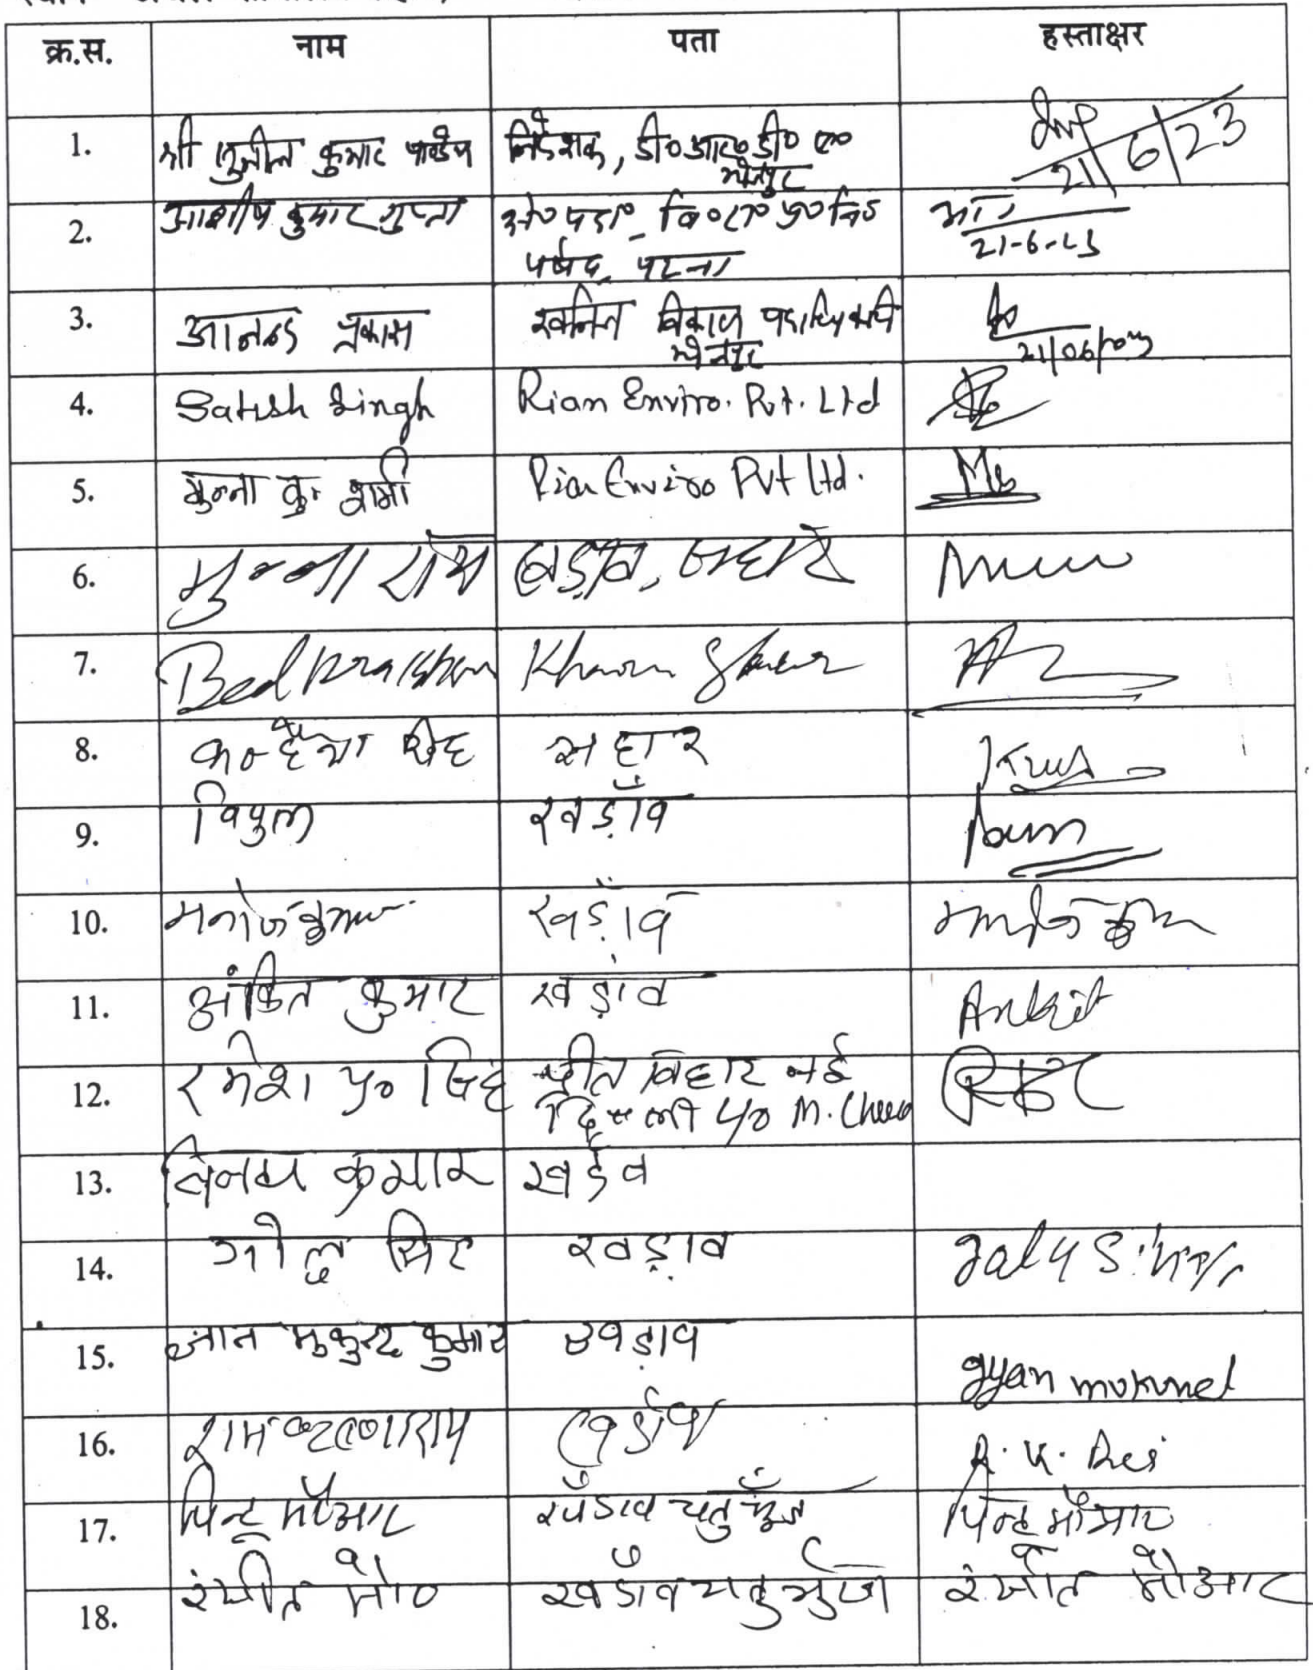 क्र.स. नाम पता हस्ताक्षर
1. श्री सुनील कुमार पाण्डेय निदेशक, डी०आर०डी० ए० भोजपुर 21/6/23
2. आशीष कुमार गुप्ता पर्षद, पटना 21-6-23
3. आनन्द प्रकाश खनिज विकास पदाधिकारी भोजपुर 21/06/2023
4. Satish Singh Rian Enviro. Pvt. Ltd
5. मुन्ना कु० शर्मा Rian Enviro Pvt Ltd.
6. मुन्ना राय खड़ाव,
7. Bed Prakash
8. कन्हैया सिंह सहार
9. विपुल खड़ाँव
10. मनोज कुमार खड़ाँव
11. अंकित कुमार खड़ांव Ankit
12. रमेश प्र० सिंह प्रीत विहार नई
दिल्ली
13. विनय कुमार खड़ॅव
14. गोलु सिंह खड़ाव
15. ज्ञान मुकुन्द कुमार खड़ाव gyan mukund
16. खड़ाँव R. K. Rai
17. पिन्टू मौआर खड़ाव चतुर्भुज पिन्टू मौआर
18. रंजीत मौ० खड़ाँव चतुर्भुज रंजीत मौआर